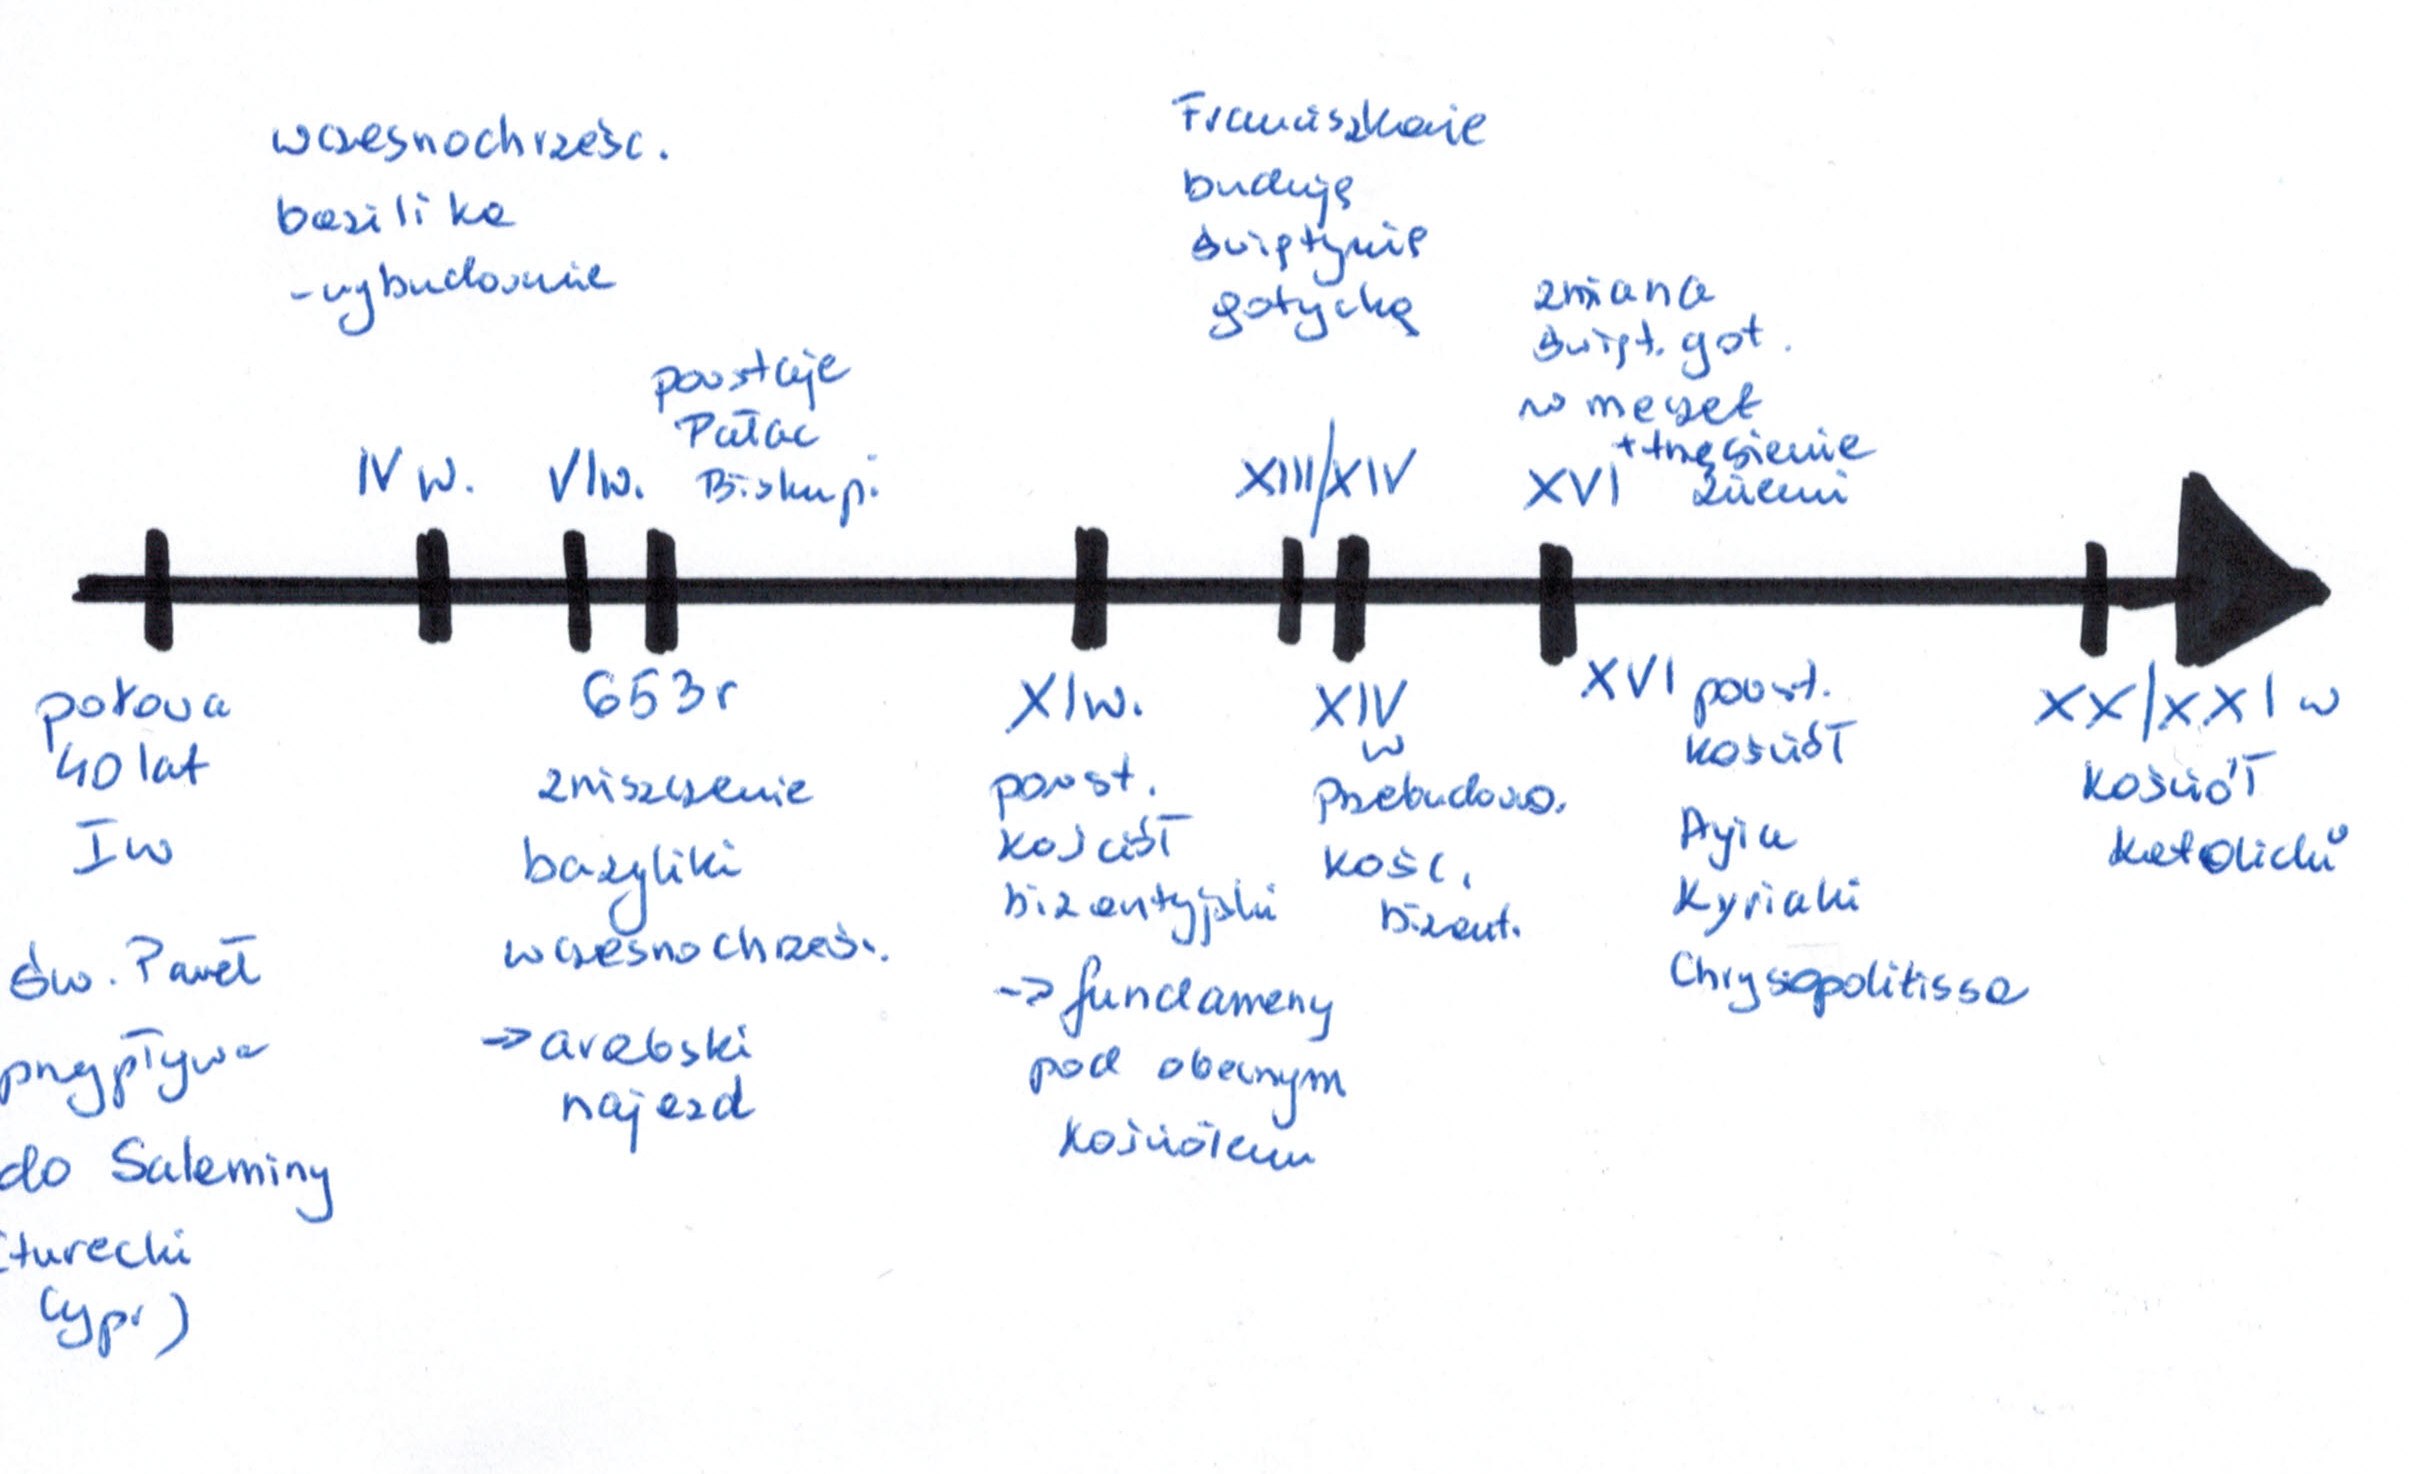 wczesnochrześc.
bazilika
- wybudowanie
IV w.
VI w.
powstaje
Pałac
Biskupi
Franciszkanie
budują
świątynię
gotycką
XIII/XIV
zmiana
świąt. got.
w meczet
+ trzęsienie
ziemi
XVI
połowa
40 lat
I w
Św. Paweł
przypływa
do Salaminy
(turecki
Cypr)
653 r
zniszczenie
bazyliki
wczesnochrześ.
-> arabski
najazd
XI w.
powst.
kościół
bizantyjski
-> fundameny
pod obecnym
kościołem
XIV
w
Przebudowa.
kośc.
bizant.
XVI powst.
kościół
Ayia
Kyriaki
Chrysopolitissa
XX/XXI w
kościół
katolicki